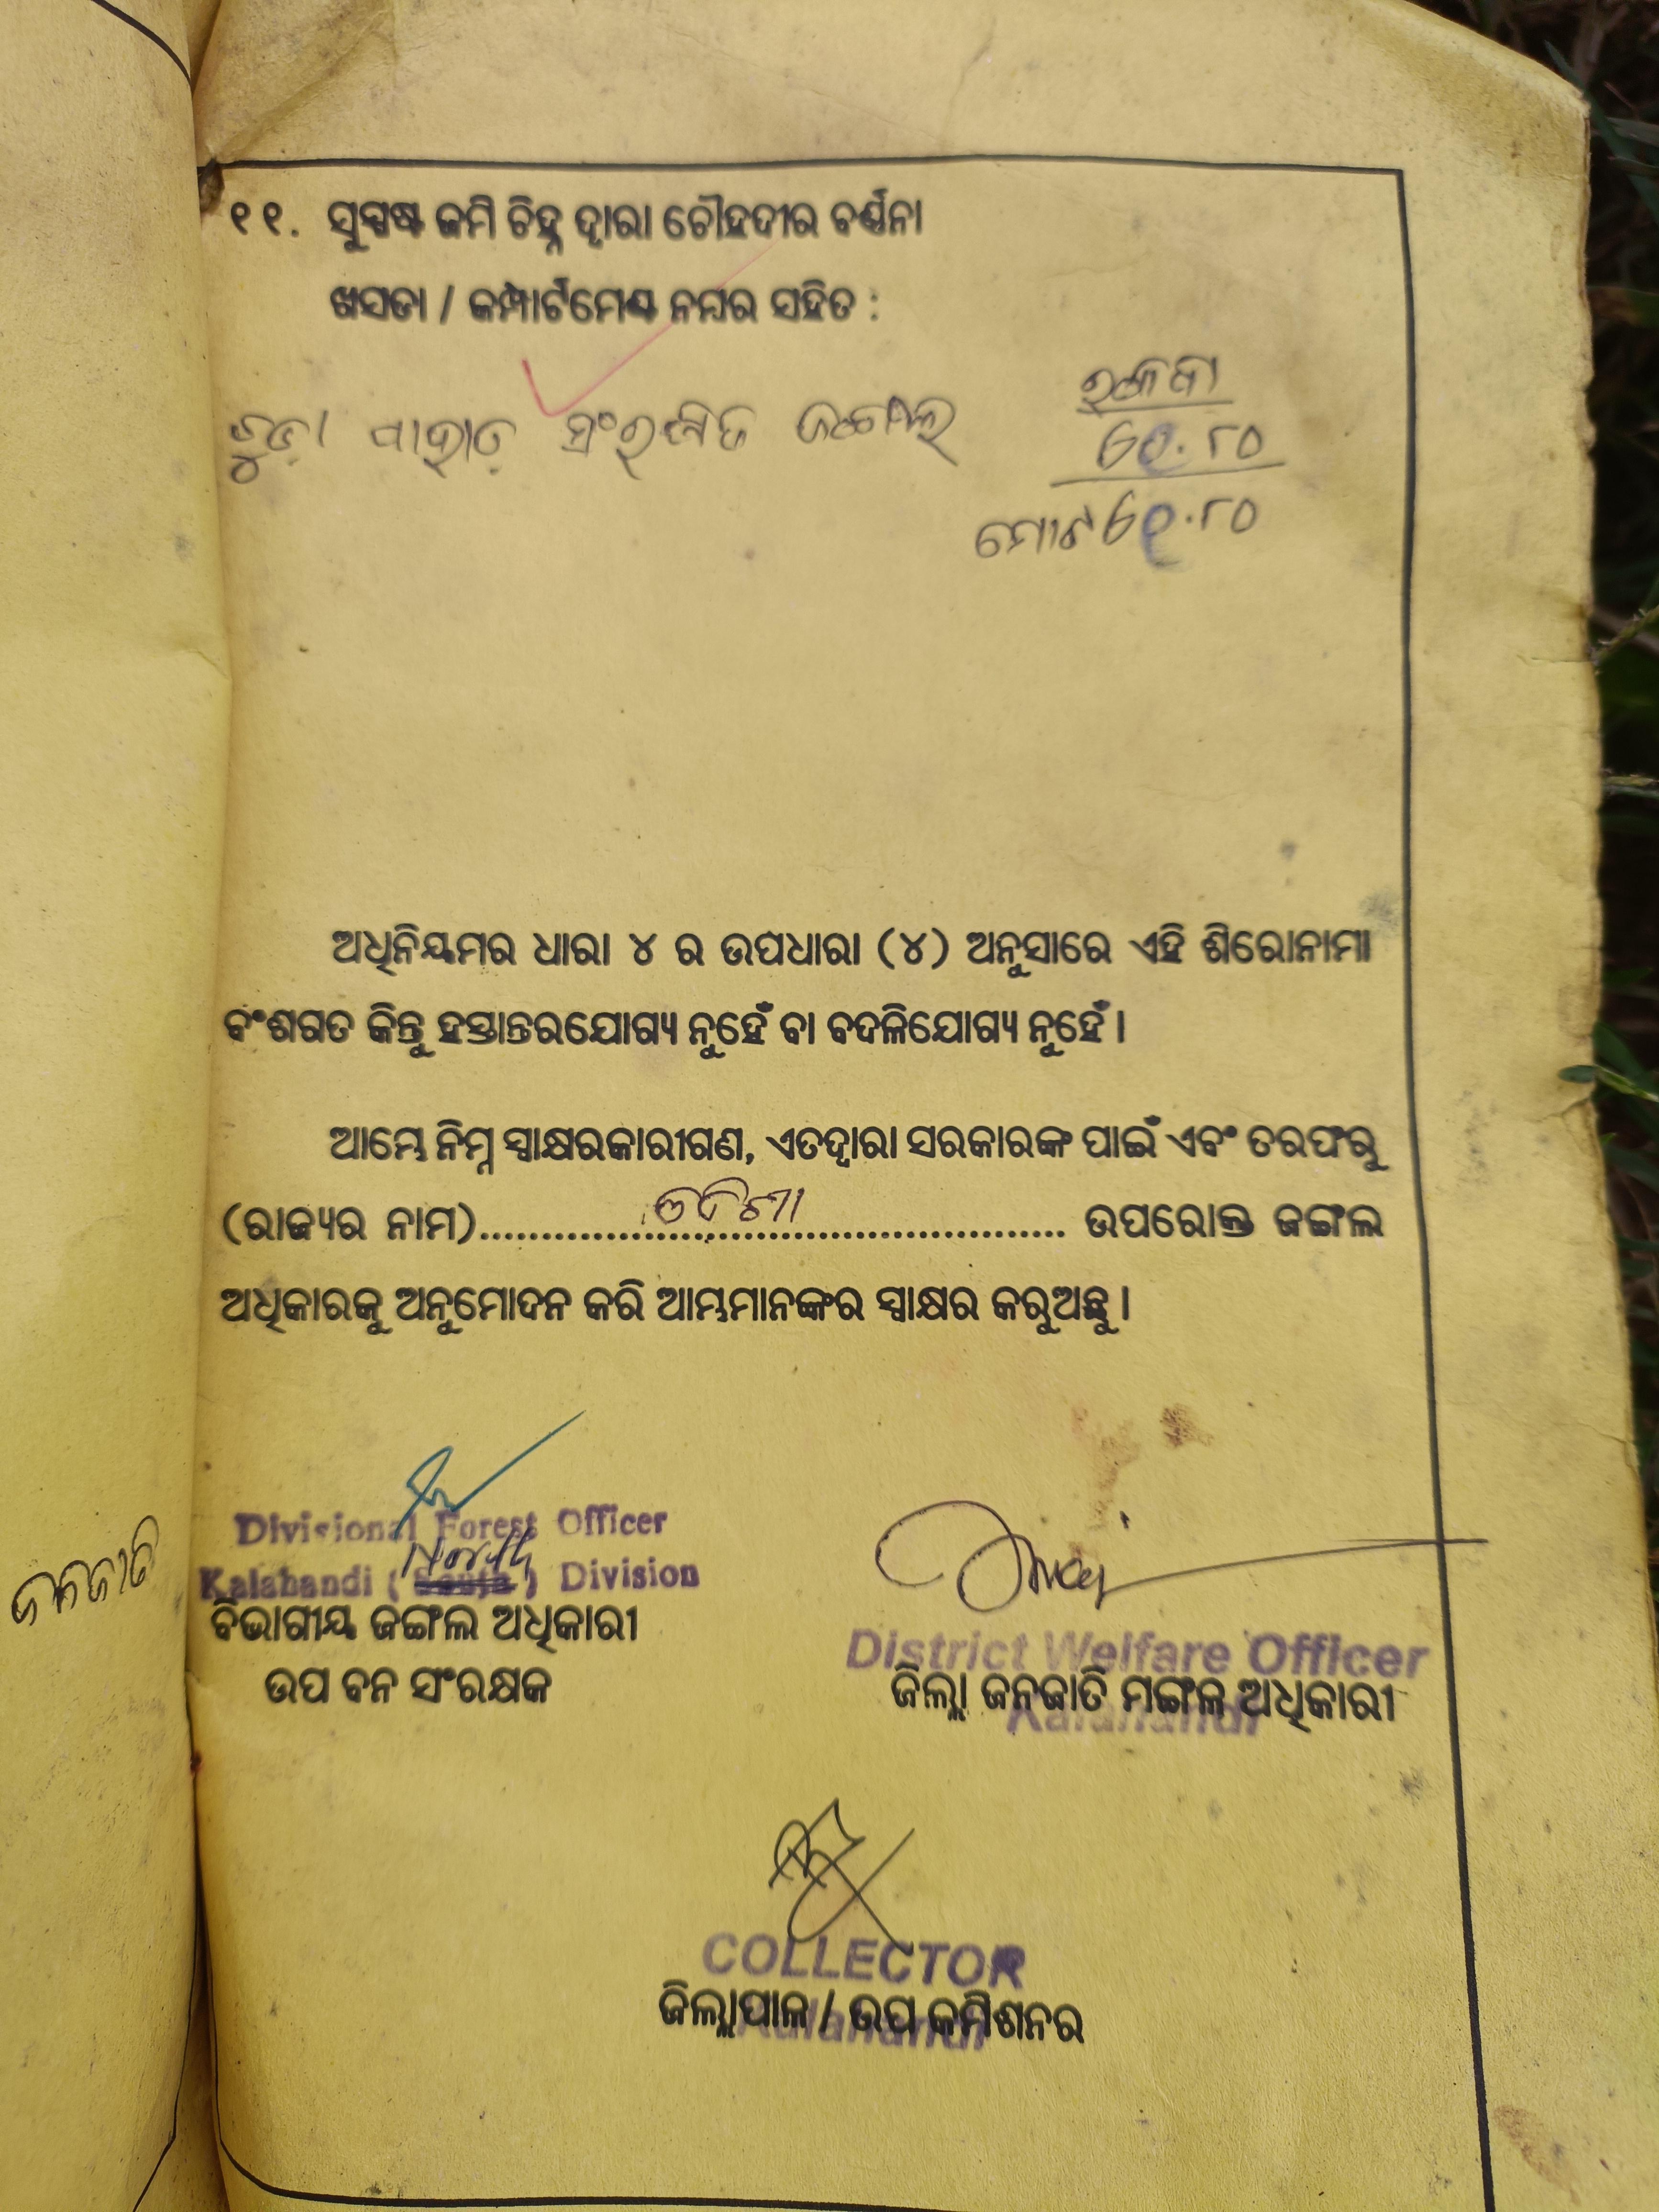 ୧୧. ସୁସ୍ପଷ୍ଟ ଜମି ଚିହ୍ନ ଦ୍ୱାରା ଚୌହଦୀର ବର୍ଣ୍ଣନା
ଖସଡା / କମ୍ପାର୍ଟମେଣ୍ଟ ନମ୍ବର ସହିତ :
ରକବା
ପାହାଡ଼ ସଂରକ୍ଷିତ ଜଙ୍ଗଲ
ମୋଟ
ଅଧିନିୟମର ଧାରା ୪ ର ଉପଧାରା (୪) ଅନୁସାରେ ଏହି ଶିରୋନାମା
ବଂଶଗତ କିନ୍ତୁ ହସ୍ତାନ୍ତରଯୋଗ୍ୟ ନୁହେଁ ବା ବଦଳିଯୋଗ୍ୟ ନୁହେଁ।
ଆମ୍ଭେ ନିମ୍ନ ସ୍ୱାକ୍ଷରକାରୀଗଣ, ଏତଦ୍ୱାରା ସରକାରଙ୍କ ପାଇଁ ଏବଂ ତରଫରୁ
(ରାଜ୍ୟର ନାମ)..........ଓଡିଶା.......... ଉପରୋକ୍ତ ଜଙ୍ଗଲ
ଅଧିକାରକୁ ଅନୁମୋଦନ କରି ଆମ୍ଭମାନଙ୍କର ସ୍ୱାକ୍ଷର କରୁଅଛୁ।
Divisional Forest Officer
Kalahandi (North) Division
ବିଭାଗୀୟ ଜଙ୍ଗଲ ଅଧିକାରୀ
ଉପ ବନ ସଂରକ୍ଷକ
ଜନଜାତି
District Welfare Officer
ଜିଲ୍ଲା ଜନଜାତି ମଙ୍ଗଳ ଅଧିକାରୀ
Kalahandi
COLLECTOR
ଜିଲ୍ଲାପାଳ / ଉପ କମିଶନର
Kalahandi